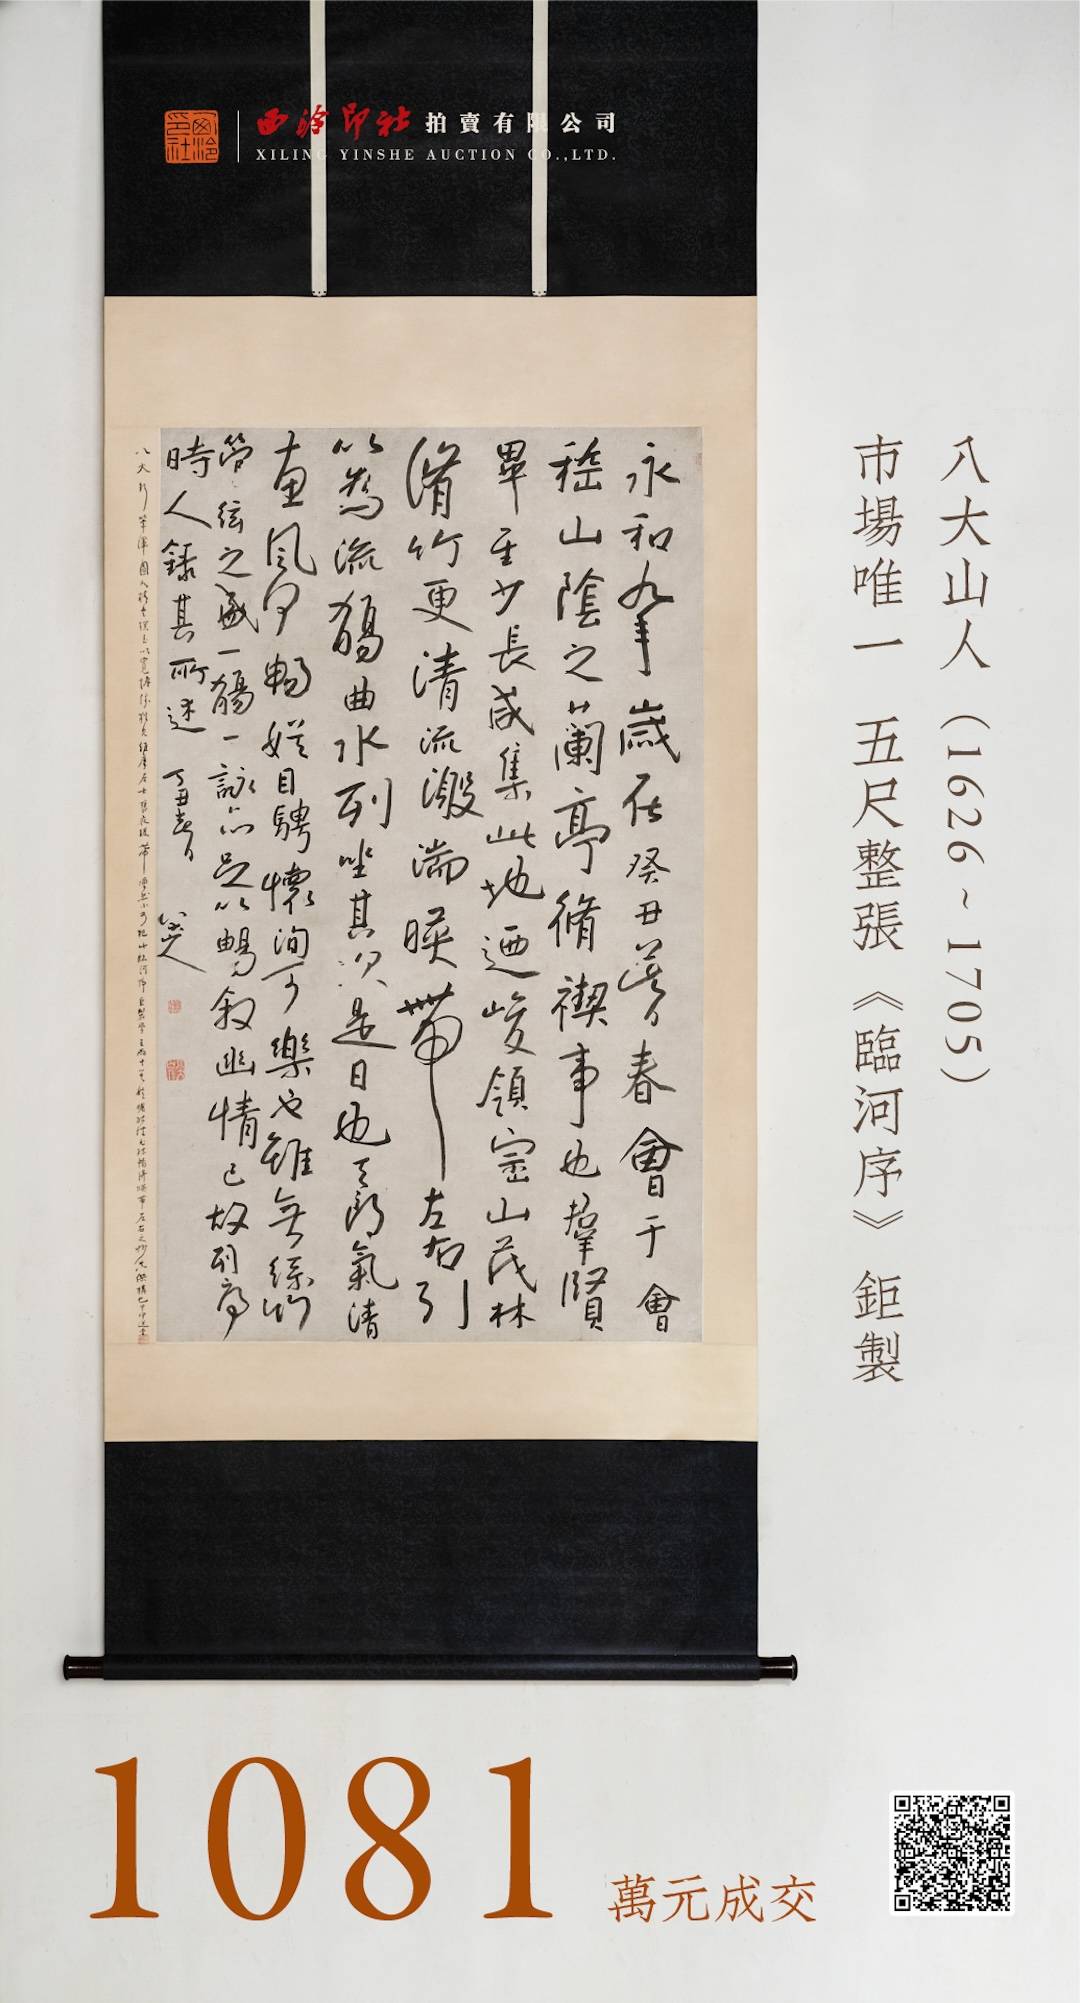 西泠印社
西泠印社拍賣有限公司
XILING YINSHE AUCTION CO.,LTD.
八大山人（1626~1705）
市場唯一 五尺整張《臨河序》鉅製
永和九年歲在癸丑暮春會于會
稽山陰之蘭亭脩禊事也羣賢
畢至少長咸集此地迺峻領崇山茂林
脩竹更清流激湍暎帶左右引
以為流觴曲水列坐其次是日也天朗氣清
惠風和暢娛目騁懷洵可樂也雖無絲竹
管絃之盛一觴一詠亦足以暢敘幽情已故列序
時人錄其所述 丁丑春日
八大山人
1081 萬元成交